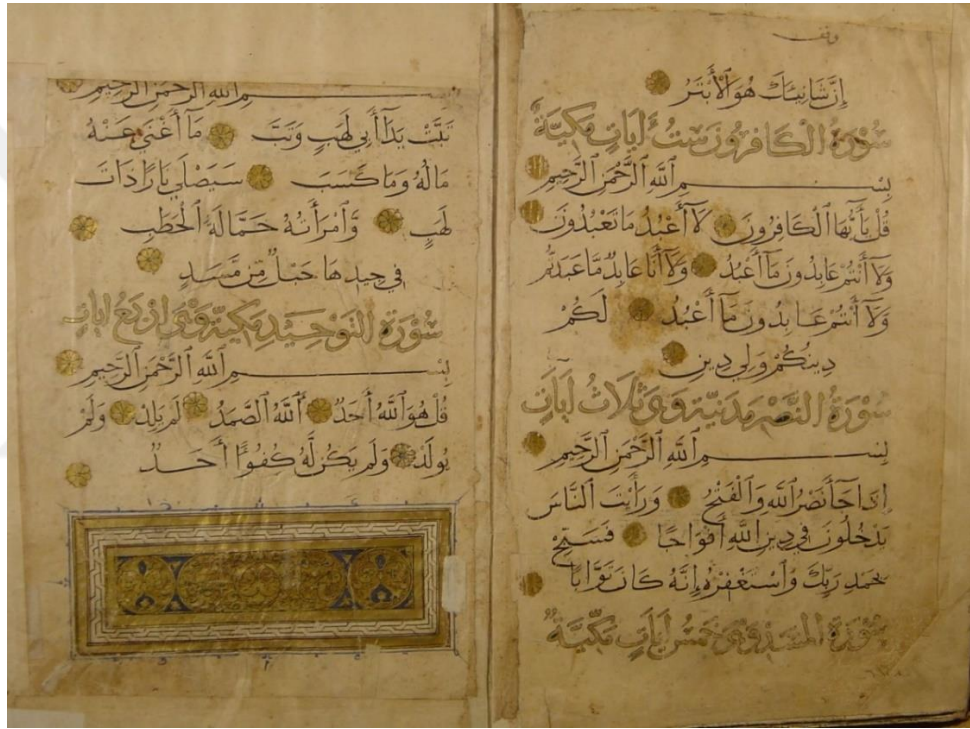 وقف
إِنَّ شَانِئَكَ هُوَ ٱلْأَبْتَرُ
سُورَةُ الْكَافِرُونَ سِتُّ اٰيَاتٍ مَكِّيَّةٌ
بِسْمِ ٱللَّهِ ٱلرَّحْمٰنِ ٱلرَّحِيمِ
قُلْ يَآ أَيُّهَا ٱلْكَافِرُونَ لَآ أَعْبُدُ مَا تَعْبُدُونَ
وَلَآ أَنْتُمْ عَابِدُونَ مَآ أَعْبُدُ وَلَآ أَنَا عَابِدٌ مَّا عَبَدتُّمْ
وَلَآ أَنْتُمْ عَابِدُونَ مَآ أَعْبُدُ لَكُمْ
دِينُكُمْ وَلِيَ دِينِ
سُورَةُ النَّصْرِ مَدَنِيَّةٌ وَهِيَ ثَلَاثُ اٰيَاتٍ
بِسْمِ ٱللَّهِ ٱلرَّحْمٰنِ ٱلرَّحِيمِ
إِذَا جَآءَ نَصْرُ ٱللَّهِ وَٱلْفَتْحُ وَرَأَيْتَ ٱلنَّاسَ
يَدْخُلُونَ فِي دِينِ ٱللَّهِ أَفْوَاجًا فَسَبِّحْ
بِحَمْدِ رَبِّكَ وَٱسْتَغْفِرْهُ إِنَّهُ كَانَ تَوَّابًا
سُورَةُ الْمَسَدِ وَهِيَ خَمْسُ اٰيَاتٍ مَكِّيَّةٌ
بِسْمِ ٱللَّهِ ٱلرَّحْمٰنِ ٱلرَّحِيمِ
تَبَّتْ يَدَآ أَبِي لَهَبٍ وَتَبَّ مَآ أَغْنَىٰ عَنْهُ
مَالُهُ وَمَا كَسَبَ سَيَصْلَىٰ نَارًا ذَاتَ
لَهَبٍ وَّٱمْرَأَتُهُ حَمَّالَةَ ٱلْحَطَبِ
فِي جِيدِهَا حَبْلٌ مِّن مَّسَدٍ
سُورَةُ التَّوْحِيدِ مَكِّيَّةٌ وَهِيَ أَرْبَعُ اٰيَاتٍ
بِسْمِ ٱللَّهِ ٱلرَّحْمٰنِ ٱلرَّحِيمِ
قُلْ هُوَ ٱللَّهُ أَحَدٌ ٱللَّهُ ٱلصَّمَدُ لَمْ يَلِدْ وَلَمْ
يُولَدْ وَلَمْ يَكُن لَّهُ كُفُوًا أَحَدٌ